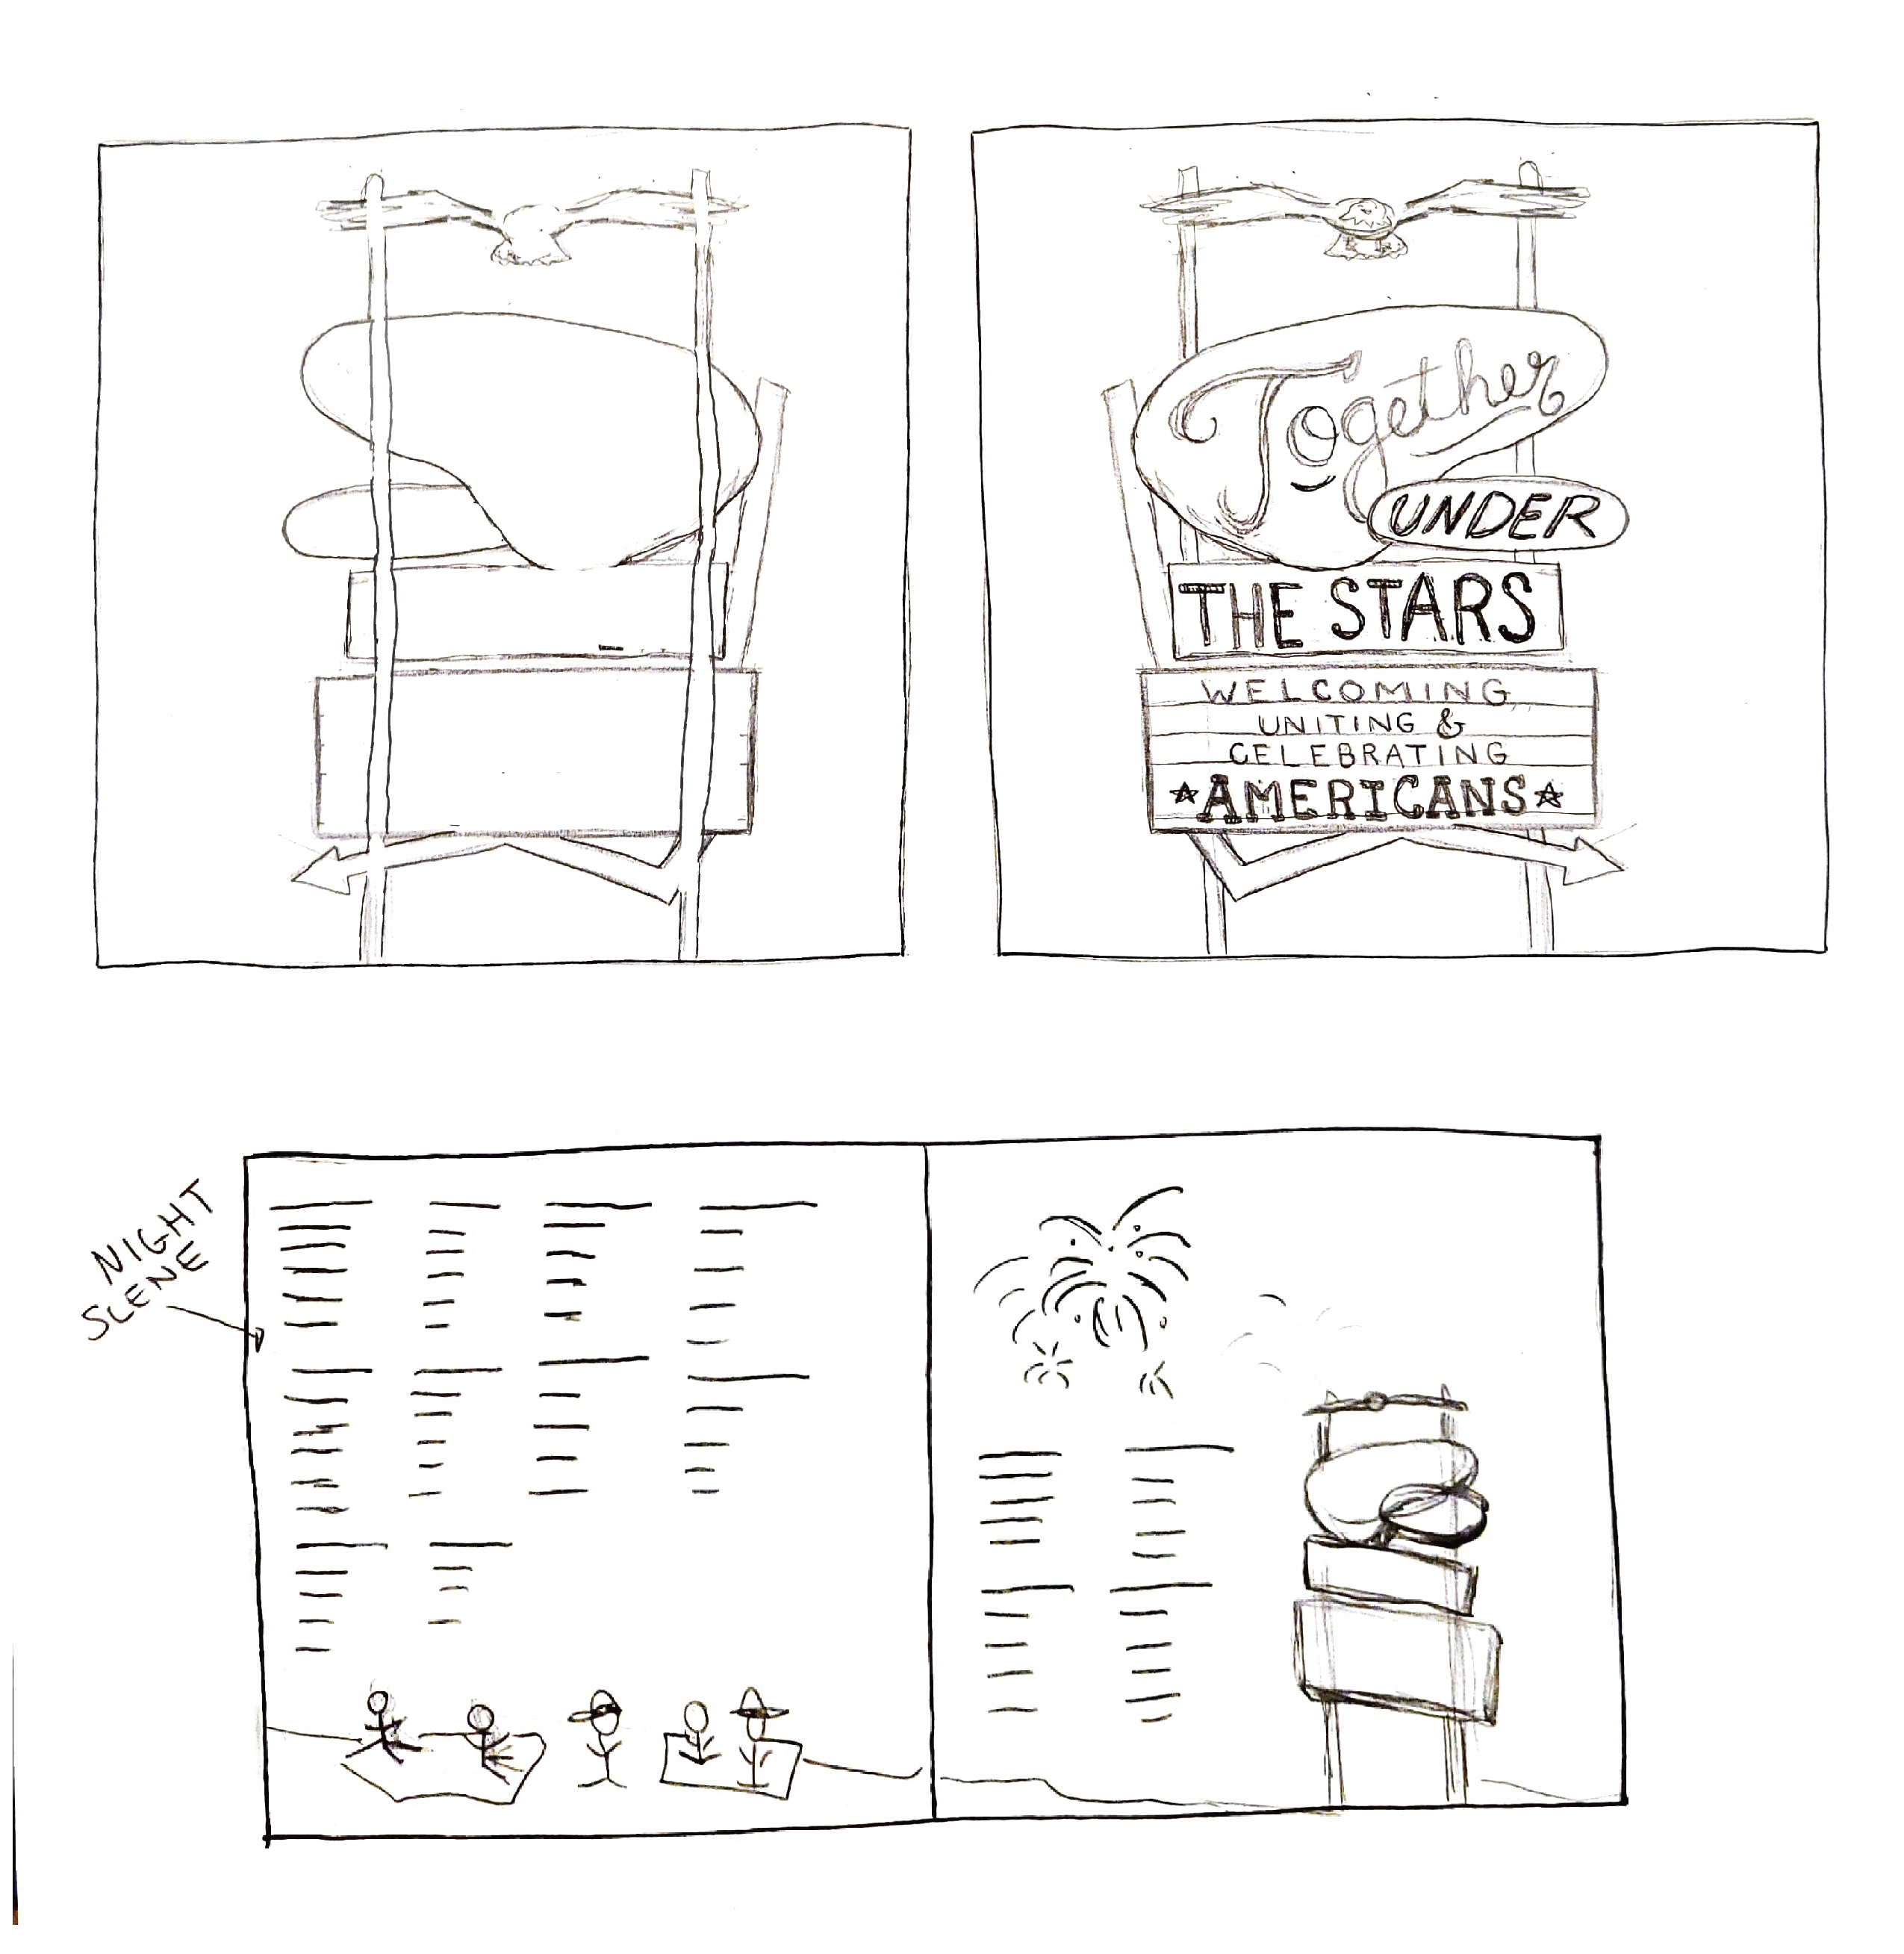 Together
UNDER
THE STARS
WELCOMING,
UNITING &
CELEBRATING
★AMERICANS★
NIGHT
SCENE